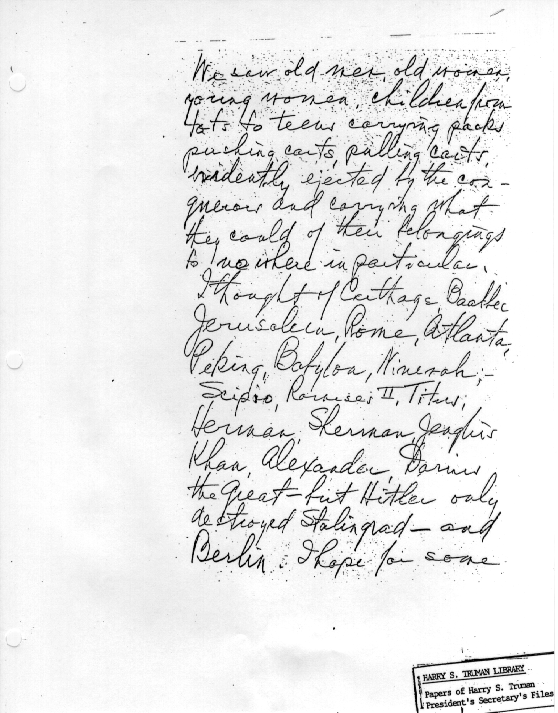 We saw old men, old women,
young women, children from
tots to teens carrying packs
pushing carts, pulling carts,
evidently ejected by the con-
querors and carrying what
they could of their belongings
to nowhere in particular.
I thought of Carthage, Baalbec
Jerusalem, Rome, Atlanta,
Peking, Babylon, Ninevah;-
Scipio, Ramses II, Titus,
Herman, Sherman, Jenghis
Khan, Alexander, Darius
the Great - but Hitler only
destroyed Stalingrad - and
Berlin. I hope for some
HARRY S. TRUMAN LIBRARY
Papers of Harry S. Truman
President's Secretary's Files